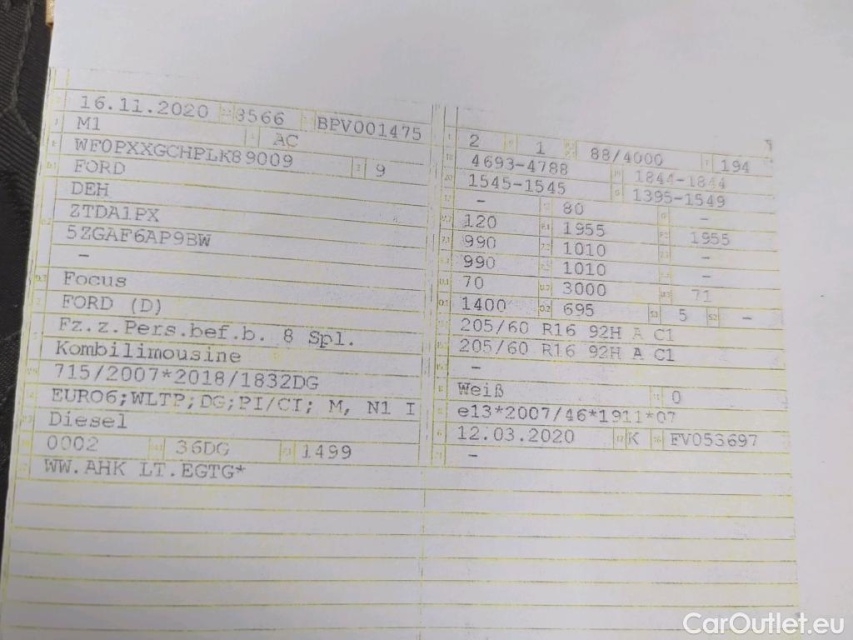 16.11.2020 8566 BPV001475
M1 AC
WF0PXXGCHPLK89009 9
FORD
DEH
ZTDA1PX
5ZGAF6AP9BW
-
Focus
FORD (D)
Fz.z.Pers.bef.b. 8 Spl.
Kombilimousine
715/2007*2018/1832DG
EURO6;WLTP;DG;PI/CI; M, N1 I
Diesel
0002 36DG 1499
WW.AHK LT.EGTG*
2 1 88/4000 194
4693-4788 1844-1844
1545-1545 1395-1549
- 80 -
120 1955 1955
990 1010 -
990 1010 -
70 3000 71
1400 695 5 -
205/60 R16 92H A C1
205/60 R16 92H A C1
-
Weiß 0
e13*2007/46*1911*07
12.03.2020 K FV053697
-
CarOutlet.eu